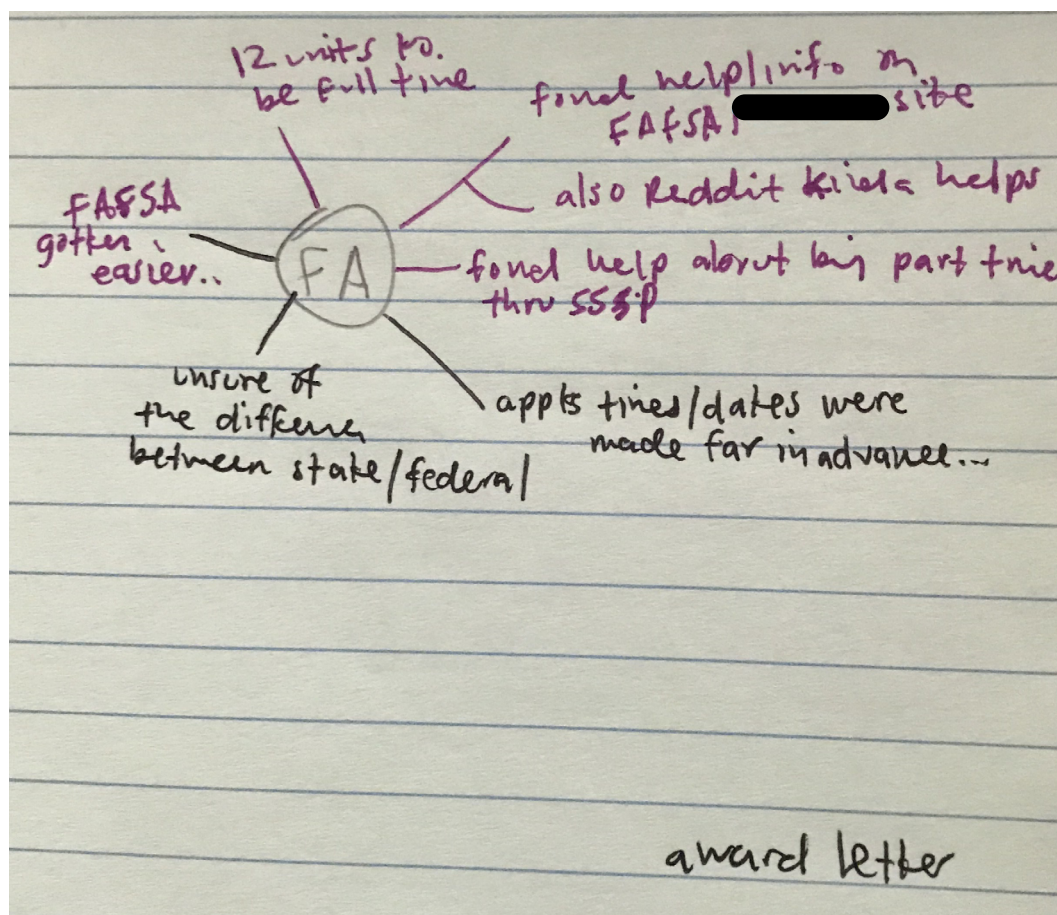 12 units to.
be full time
found help/info on
FAFSA/ site
also Reddit kinda helps
FAFSA
gotten
easier..
FA
found help about being part time
thru SSSP
unsure of
the difference
between state/federal
appts times/dates were
made far in advance...
award letter